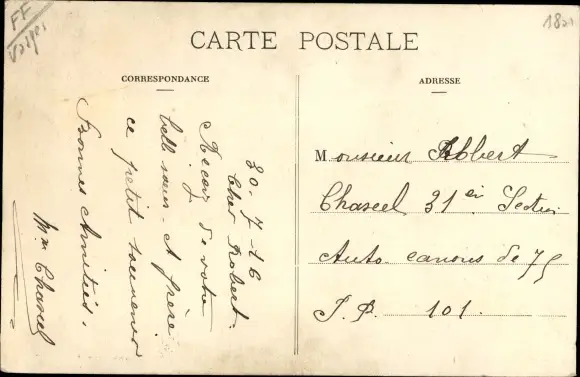 FF
Vosges
CARTE POSTALE
CORRESPONDANCE
30-7-16
Cher Robert.
Recois de votre
belle sœur et frère
ce petit souvenir
Bonnes Amitiés.
Mme Chascel
ADRESSE
Monsieur Robert
Chascel 31er Section
Auto canons de 75
S. P. 101.